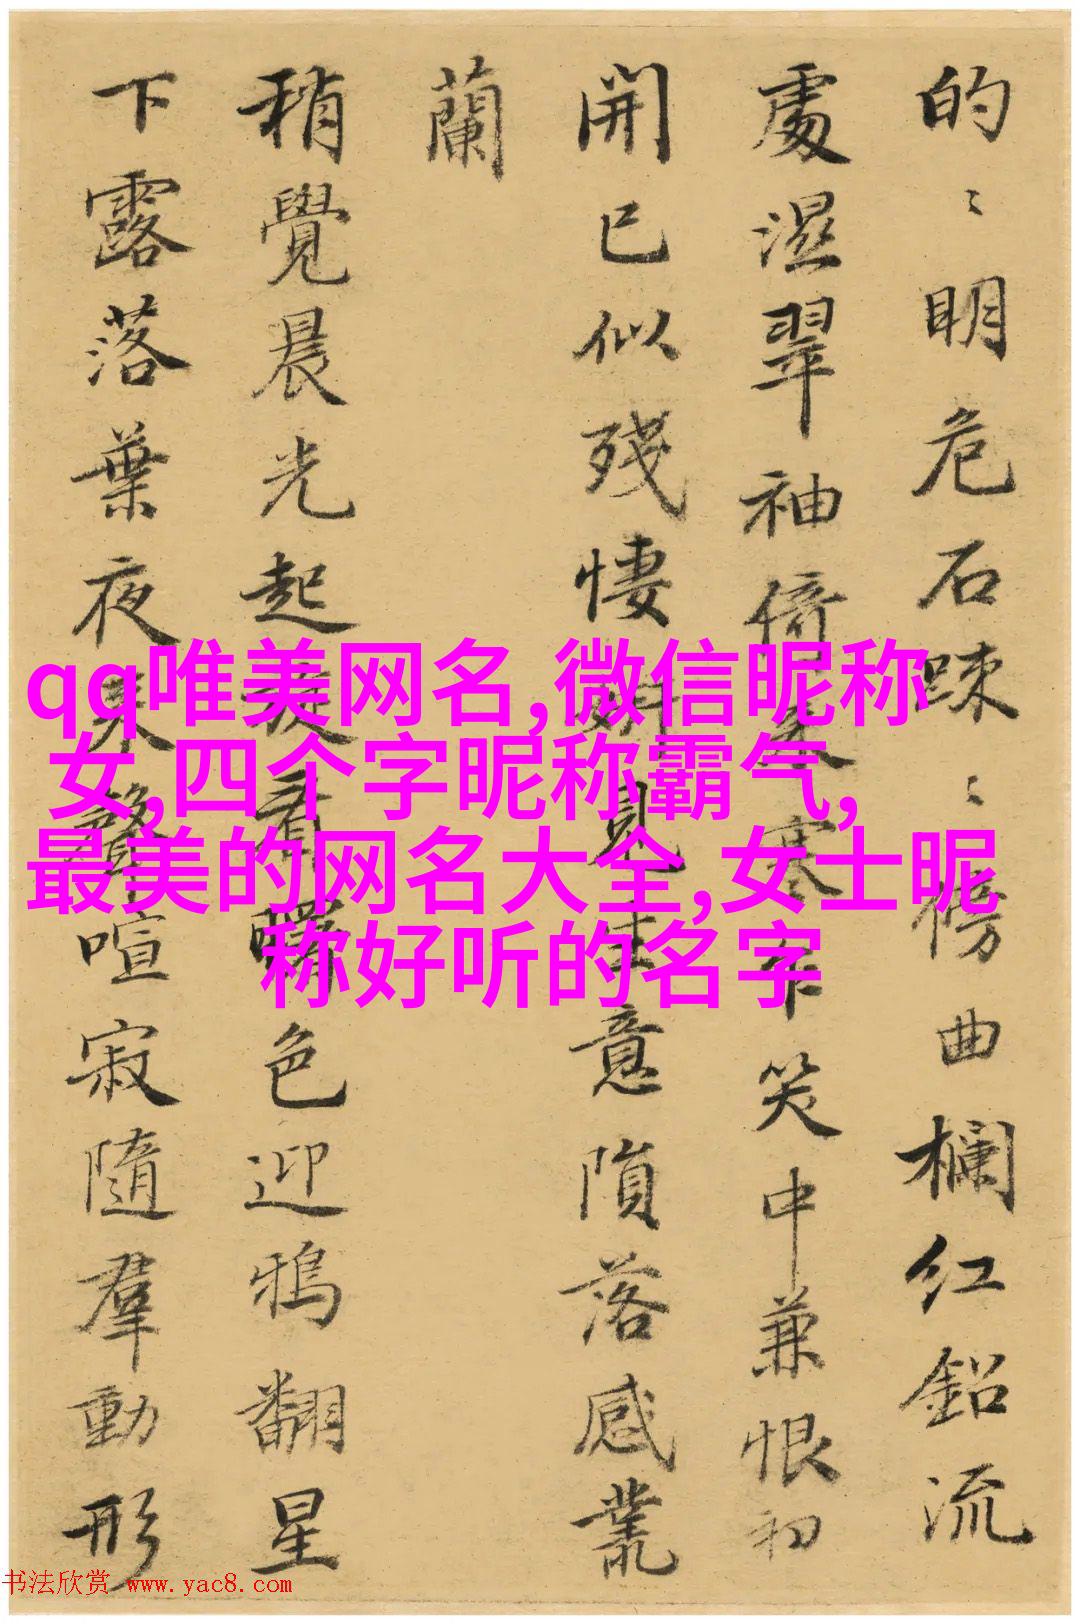 的〻明危石踈〻傍曲欄红鉛流
處濕翠袖倚 寒乍笑中兼恨初
開已似残悽 見生意隕落感叢
蘭
稍覺晨光起 看曙色迎鴉翻星
下露落葉夜来聲喧寂隨羣動形
qq唯美网名,微信昵称
女,四个字昵称霸气,
最美的网名大全,女士昵
称好听的名字
书法欣赏 www.yac8.com